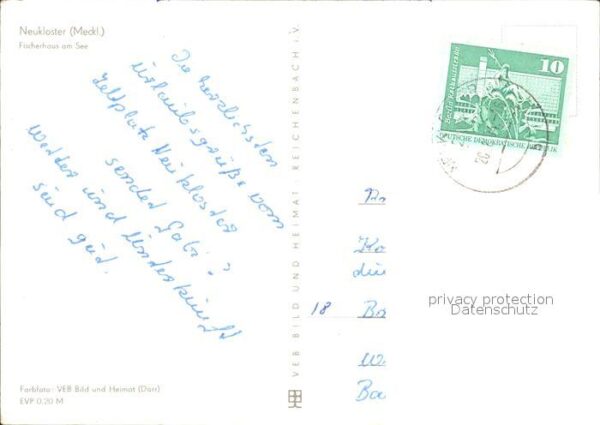 Neukloster (Meckl.)
Fischerhaus am See
Die herzlichsten
Urlaubsgrüße vom
Zeltplatz Neukloster
sendet Gabi
Wetter und Unterkunft
sind gut.
Farbfoto: VEB Bild und Heimat (Darr)
EVP 0,20 M
VEB BILD UND HEIMAT REICHENBACH i.V.
10
DEUTSCHE DEMOKRATISCHE REPUBLIK
18
Ba
privacy protection
Datenschutz